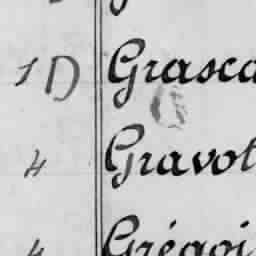 1D Grasca
4 Gravot
4 Grégoi